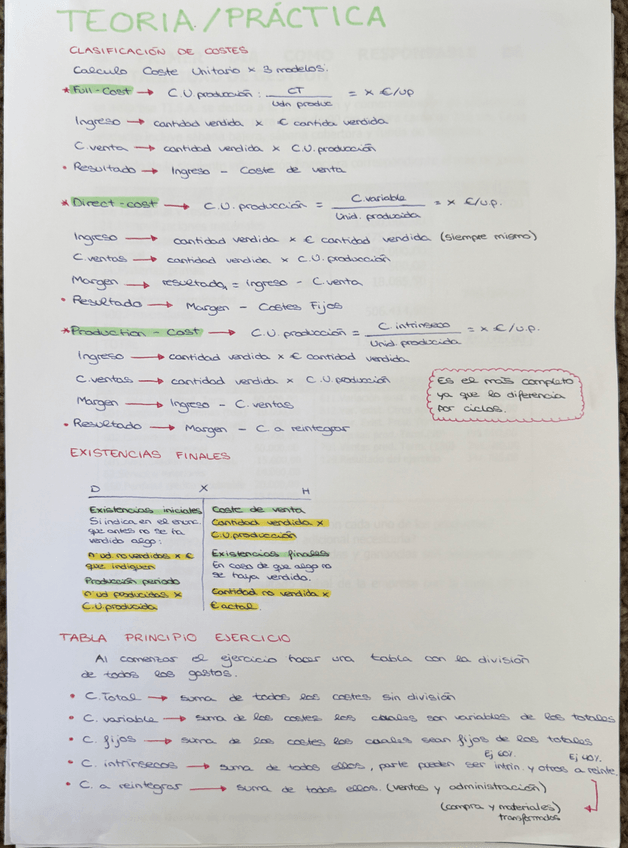 TEORIA/PRÁCTICA
CLASIFICACIÓN DE COSTES
Calculo Coste Unitario x 3 modelos:
* Full-Cost → C.U. producción: CT / Udn produc = x €/up
Ingreso → cantidad vendida x € cantida vendida
C.venta → cantidad vendida x C.U. producción
• Resultado → Ingreso - Coste de venta
* Direct-cost → C.U. producción = C variable / Unid. producida = x €/up.
Ingreso → cantidad vendida x € cantidad vendida (siempre mismo)
C.ventas → cantidad vendida x C.U. producción
Margen → resultado, = ingreso - C venta
• Resultado → Margen - Costes Fijos
* Production-Cost → C.U. producción = C. intrínseco / Unid. producida = x €/up.
Ingreso → cantidad vendida x € cantidad vendida
C.ventas → cantidad vendida x C.U. producción
Margen → Ingreso - C. ventas
• Resultado → Margen - C. a reintegrar
Es el más completo
ya que lo diferencia
por ciclos.
EXISTENCIAS FINALES
D X H
Existencias iniciales
Si indica en el enunc.
que antes no se ha
vendido algo:
nº ud no vendidas x €
que indiquen
Producción periodo
nº ud producidas x
C.U. producida
Coste de venta
Cantidad vendida x
C.U. producción
Existencias finales
En caso de que algo no
se haya vendido.
Cantidad no vendida x
€ actal.
TABLA PRINCIPIO EJERCICIO
Al comenzar el ejercicio hacer una tabla con la división
de todos los gastos.
• C. Total → suma de todos los costes sin división
• C. variable → suma de los costes los cuales son variables de los totales
• C. fijos → suma de los costes los cuales sean fijos de los totales
Ej 60%. Ej 40%.
• C. intrínsecos → suma de todos ellos, parte pueden ser intrín. y otros a reinte.
• C. a reintegrar → suma de todos ellos. (ventas y administración)
(compra y materiales)
transformados